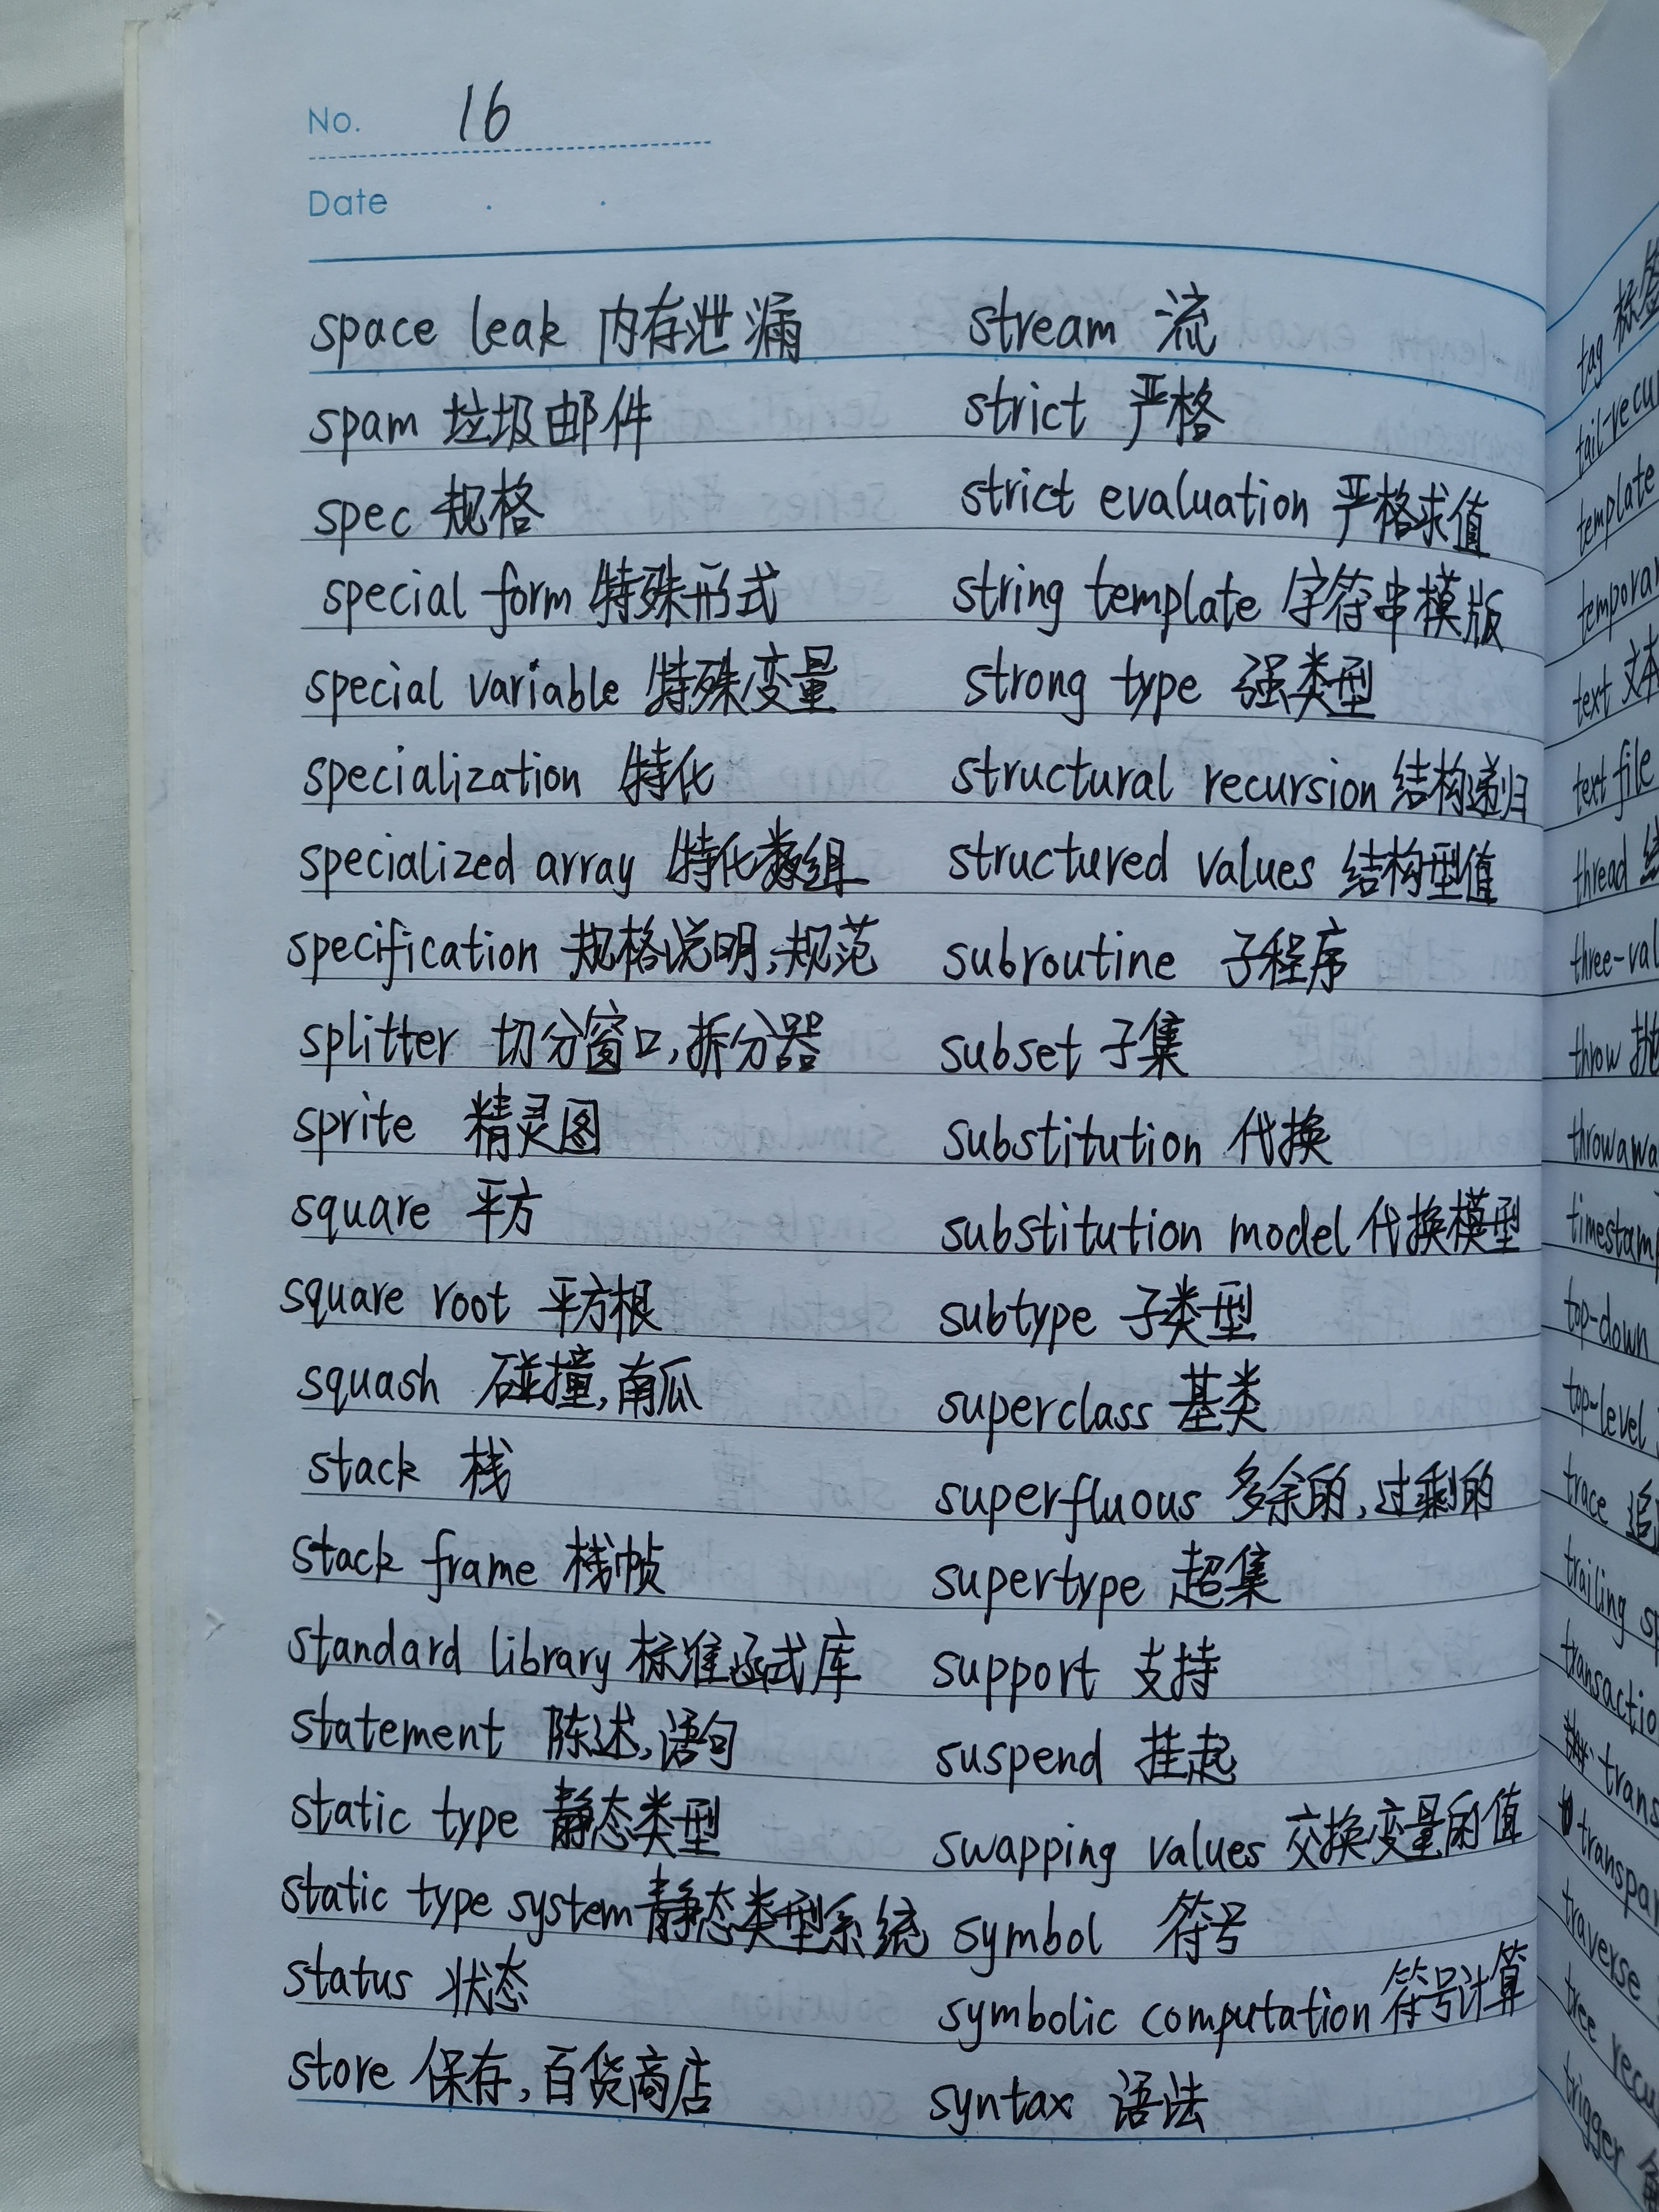 No. 16
Date
space leak 内存泄漏
spam 垃圾邮件
spec 规格
special form 特殊形式
special variable 特殊变量
specialization 特化
specialized array 特化数组
specification 规格说明,规范
splitter 切分窗口,拆分器
sprite 精灵图
square 平方
square root 平方根
squash 碰撞,南瓜
stack 栈
stack frame 栈帧
standard library 标准函式库
statement 陈述,语句
static type 静态类型
static type system 静态类型系统
status 状态
store 保存,百货商店
stream 流
strict 严格
strict evaluation 严格求值
string template 字符串模版
strong type 强类型
structural recursion 结构递归
structured values 结构型值
subroutine 子程序
subset 子集
substitution 代换
substitution model 代换模型
subtype 子类型
superclass 基类
superfluous 多余的,过剩的
supertype 超集
support 支持
suspend 挂起
swapping values 交换变量的值
symbol 符号
symbolic computation 符号计算
syntax 语法
tag 标签
template
text 文本
text file
thread
throw
top-down
top-level
trace
trailing
traverse
tree
trigger